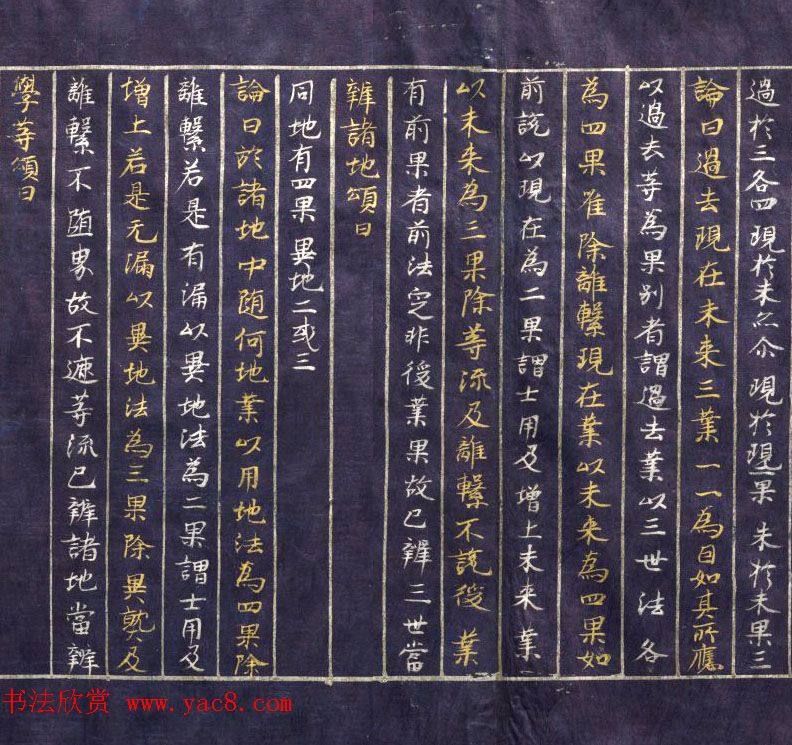 過於三各四 現於未亦尒 現於現果 未於未果三
論曰過去現在未来三業一一為因如其所應
以過去等為果別者謂過去業以三世法各
為四果唯除離繫現在業以未来為四果如
前說以現在為二果謂士用及增上未来業
以未来為三果除等流及離繫不說後業
有前果者前法定非後業果故已辯三世當
辯諸地頌曰
同地有四果 異地二或三
論曰於諸地中随何地業以用地法為四果除
離繫若是有漏以異地法為二果謂士用及
增上若是无漏以異地法為三果除異熟及
離繫不随界故不遮等流已辯諸地當辯
學等頌曰
书法欣赏 www.yac8.com